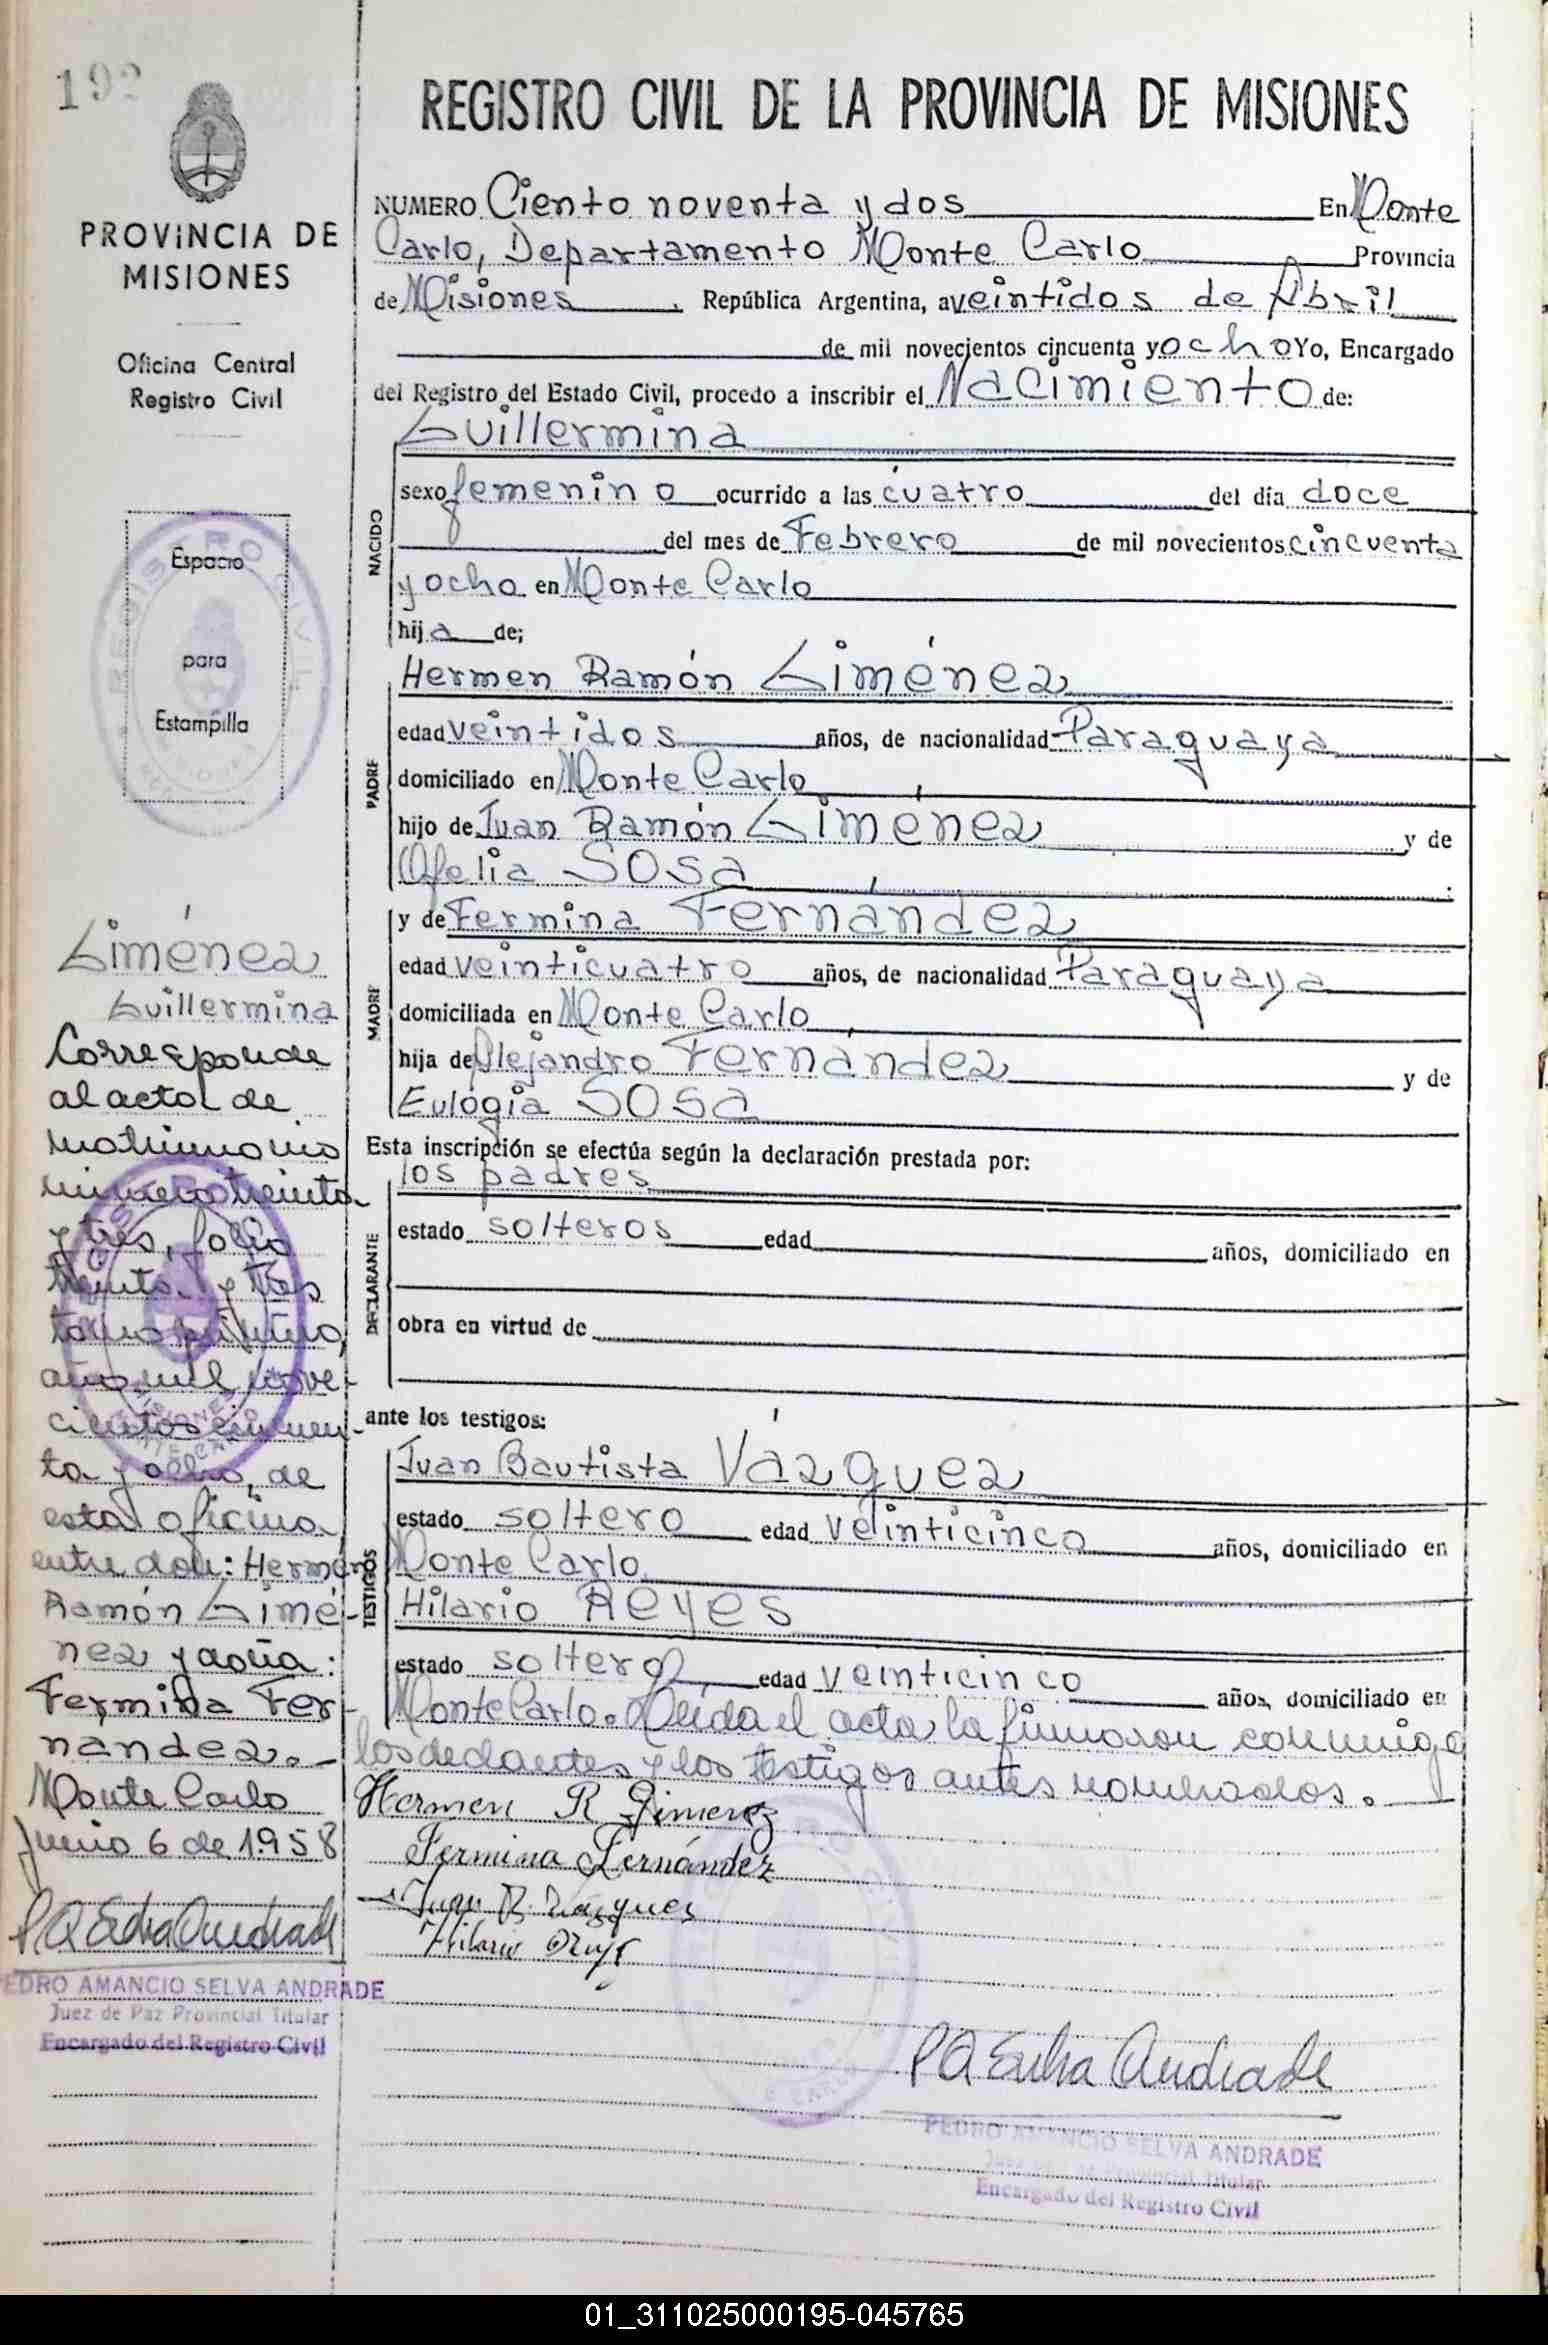 192
PROVINCIA DE
MISIONES
Oficina Central
Registro Civil
Espacio
para
Estampilla
Giménez
Guillermina
Corresponde
al acta de
matrimonio
número treinta
y tres, folio
treinta y tres
tomo primero,
año mil nove-
cientos cincuen-
ta y ocho, de
esta oficina
entre don: Hermen
Ramón Gimé-
nez y doña:
Fermina Fer-
nandez.
Monte Carlo
Junio 6 de 1958
PEDRO AMANCIO SELVA ANDRADE
Juez de Paz Provincial Titular
Encargado del Registro Civil
REGISTRO CIVIL DE LA PROVINCIA DE MISIONES
NUMERO Ciento noventa y dos En Monte
Carlo, Departamento Monte Carlo Provincia
de Misiones, República Argentina, a veintidos de Abril
de mil novecientos cincuenta y ocho Yo, Encargado
del Registro del Estado Civil, procedo a inscribir el Nacimiento de:
Guillermina
NACIDO
sexo femenino ocurrido a las cuatro del día doce
del mes de Febrero de mil novecientos cincuenta
y ocho en Monte Carlo
hija de;
Hermen Ramón Giménez
PADRE
edad veintidos años, de nacionalidad Paraguaya
domiciliado en Monte Carlo
hijo de Juan Ramón Giménez y de
Ofelia Sosa
y de Fermina Fernández
MADRE
edad veinticuatro años, de nacionalidad Paraguaya
domiciliada en Monte Carlo
hija de Alejandro Fernández y de
Eulogia Sosa
Esta inscripción se efectúa según la declaración prestada por:
los padres
DECLARANTE
estado solteros edad años, domiciliado en
obra en virtud de
ante los testigos:
Juan Bautista Vázquez
TESTIGOS
estado soltero edad veinticinco años, domiciliado en
Monte Carlo
Hilario Reyes
estado soltero edad veinticinco años, domiciliado en
Monte Carlo. Leída el acta la firmaron conmigo
los declantes y los testigos antes nombrados.
Hermen R Gimenez
Fermina Fernández
Juan B. Vázquez
Hilario
PEDRO AMANCIO SELVA ANDRADE
Juez de Paz Provincial Titular
Encargado del Registro Civil
01_311025000195-045765